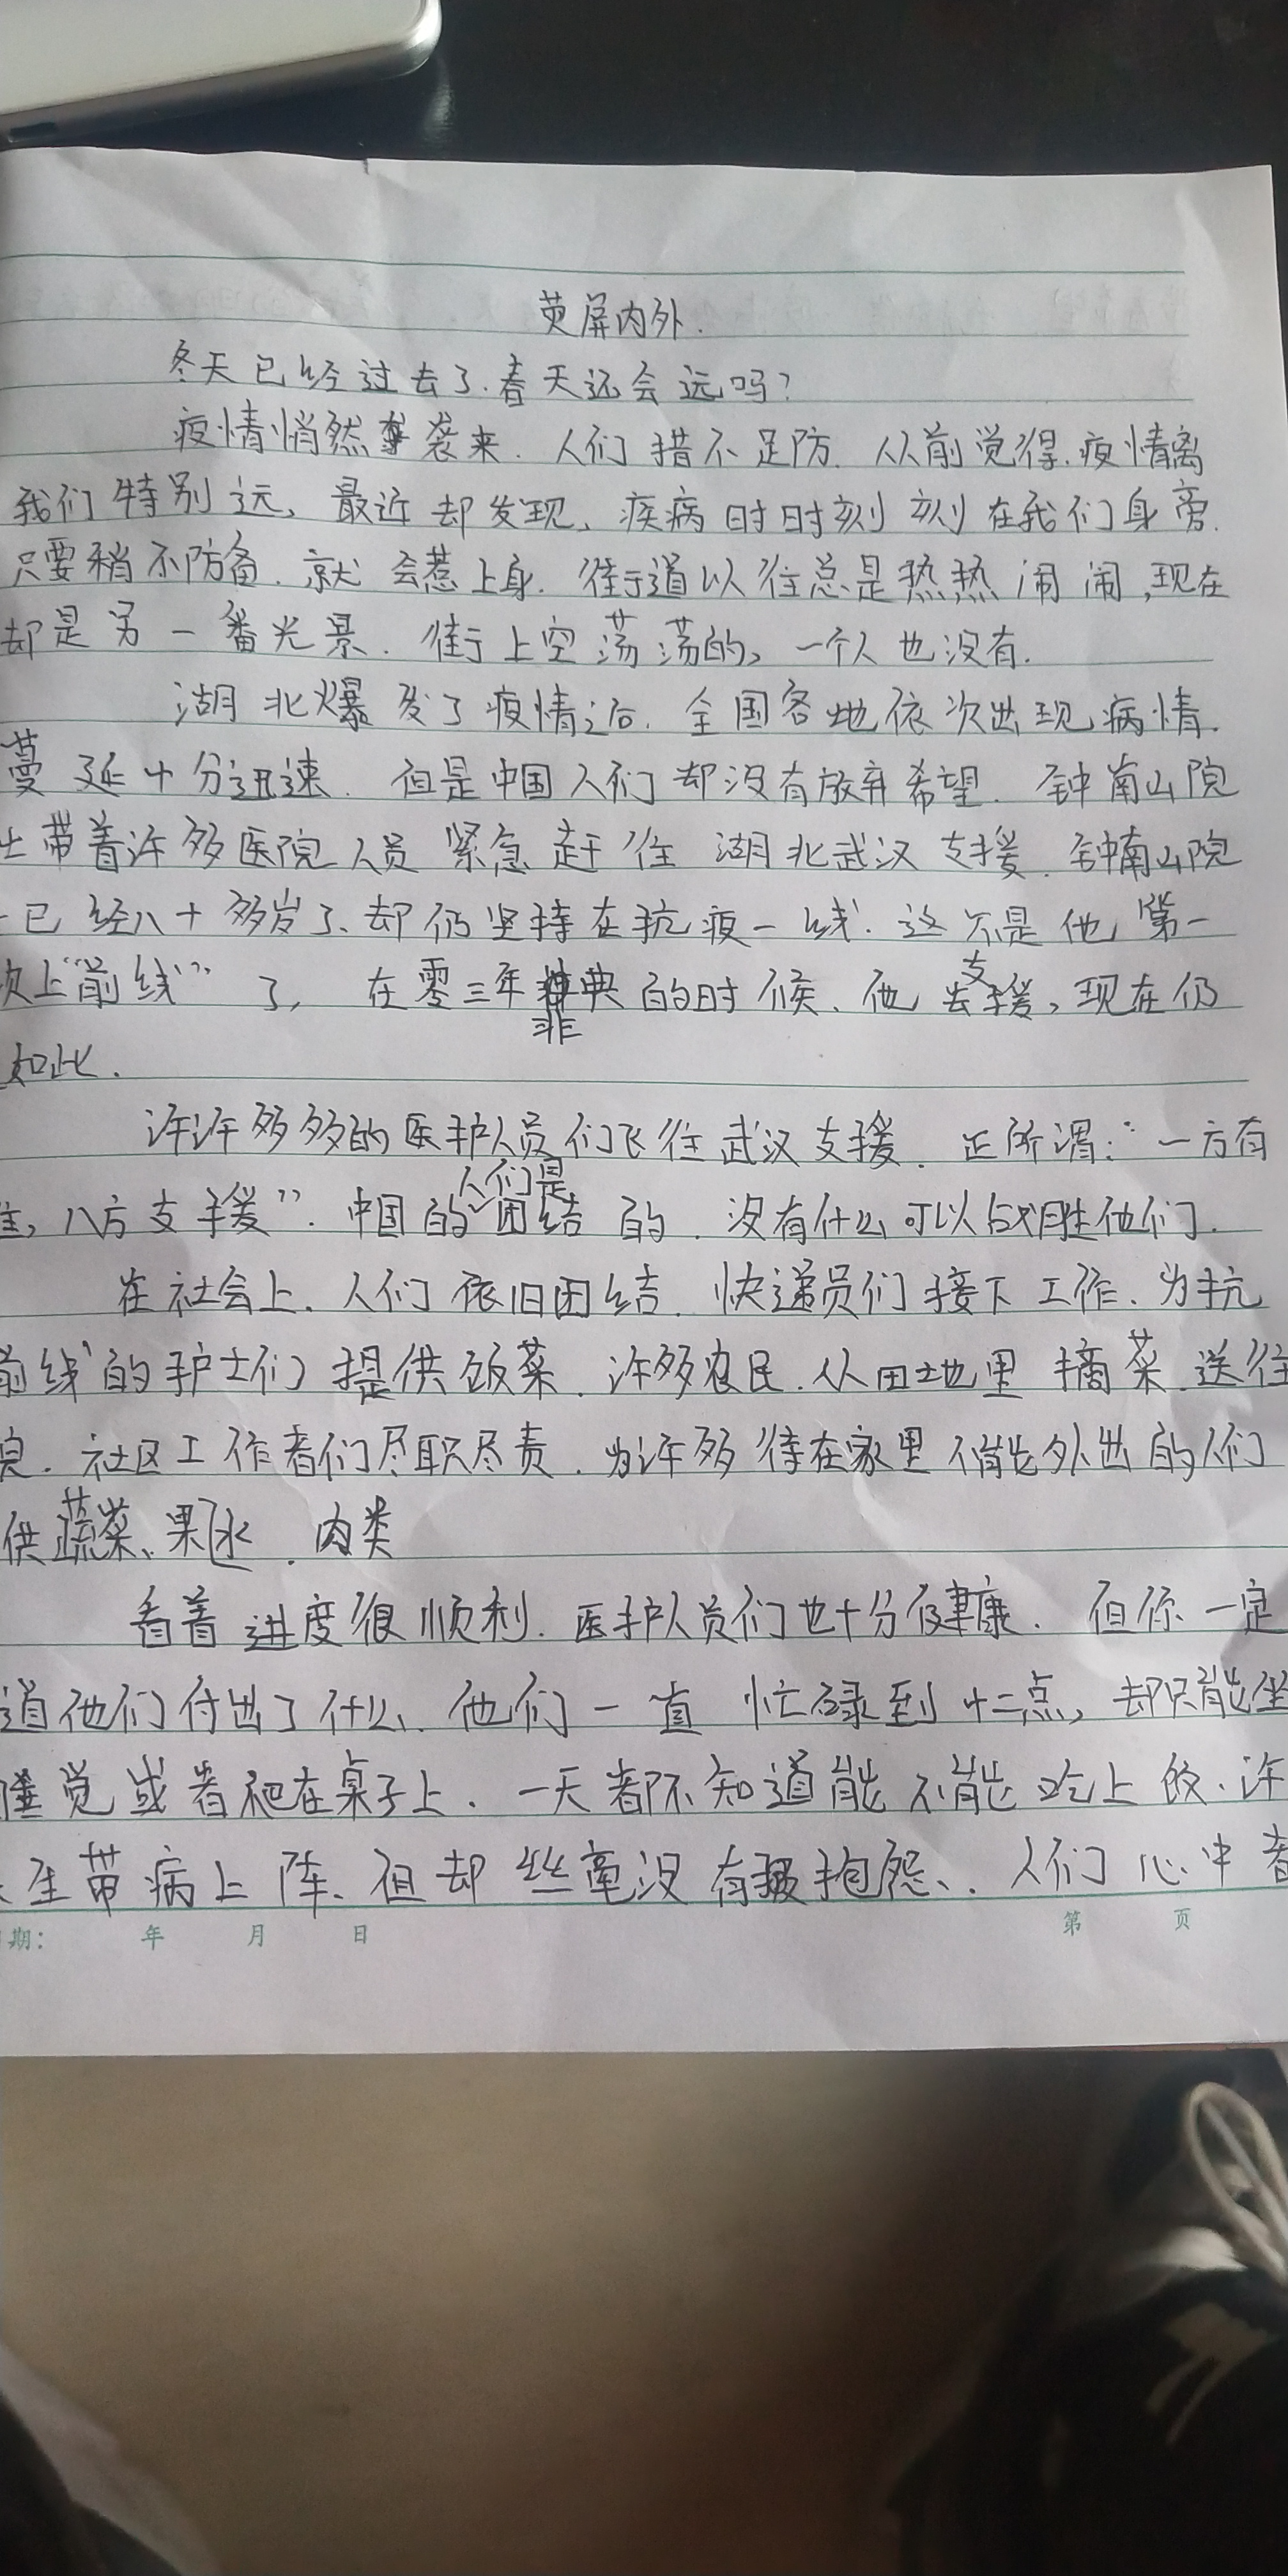 荧屏内外.
冬天已经过去了.春天还会远吗?
疫情悄然袭来.人们措不足防.从前觉得.疫情离
我们特别远、最近却发现、疾病时时刻刻在我们身旁.
只要稍不防备.就会惹上身.街道以往总是热热闹闹,现在
却是另一番光景.街上空荡荡的,一个人也没有.
湖北爆发了疫情之后.全国各地依次出现病情.
蔓延十分迅速.但是中国人们却没有放弃希望.钟南山院
士带着许多医院人员紧急赶往湖北武汉支援.钟南山院
已经八十多岁了、却仍坚持在抗疫一线.这不是他第一
次上“前线”了,在零三年非典的时候、他去支援,现在仍
如此.
许许多多的医护人员们飞往武汉支援.正所谓:“一方有
难,八方支援”.中国的人们是团结的.没有什么可以战胜他们.
在社会上.人们依旧团结.快递员们接下工作、为抗
前线的护士们提供饭菜.许多农民.从田地里摘菜.送往
社区工作者们尽职尽责.为许多待在家里不能外出的人们
供蔬菜、水果.肉类
看着进度很顺利.医护人员们也十分健康.但你一定
道他们付出了什么.他们一直忙碌到十二点,却只能坐
睡觉或者爬在桌子上.一天都不知道能不能吃上饭.许
生带病上阵、但却丝毫没有抱怨、.人们心中都
期: 年 月 日 第 页